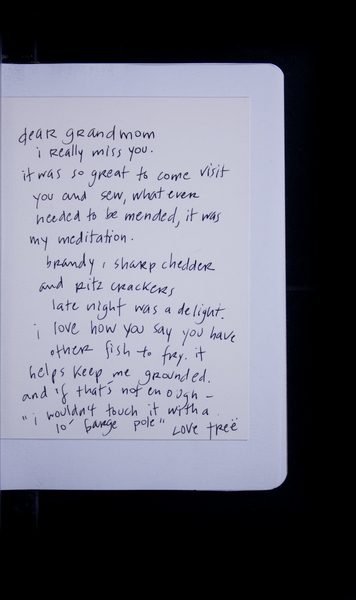 dear grandmom
i really miss you.
it was so great to come visit
you and sew, whatever
needed to be mended, it was
my meditation.
brandy, sharp chedder
and ritz crackers
late night was a delight.
i love how you say you have
other fish to fry. it
helps keep me grounded.
and if that's not enough -
"i wouldn't touch it with a
10' barge pole" love treë